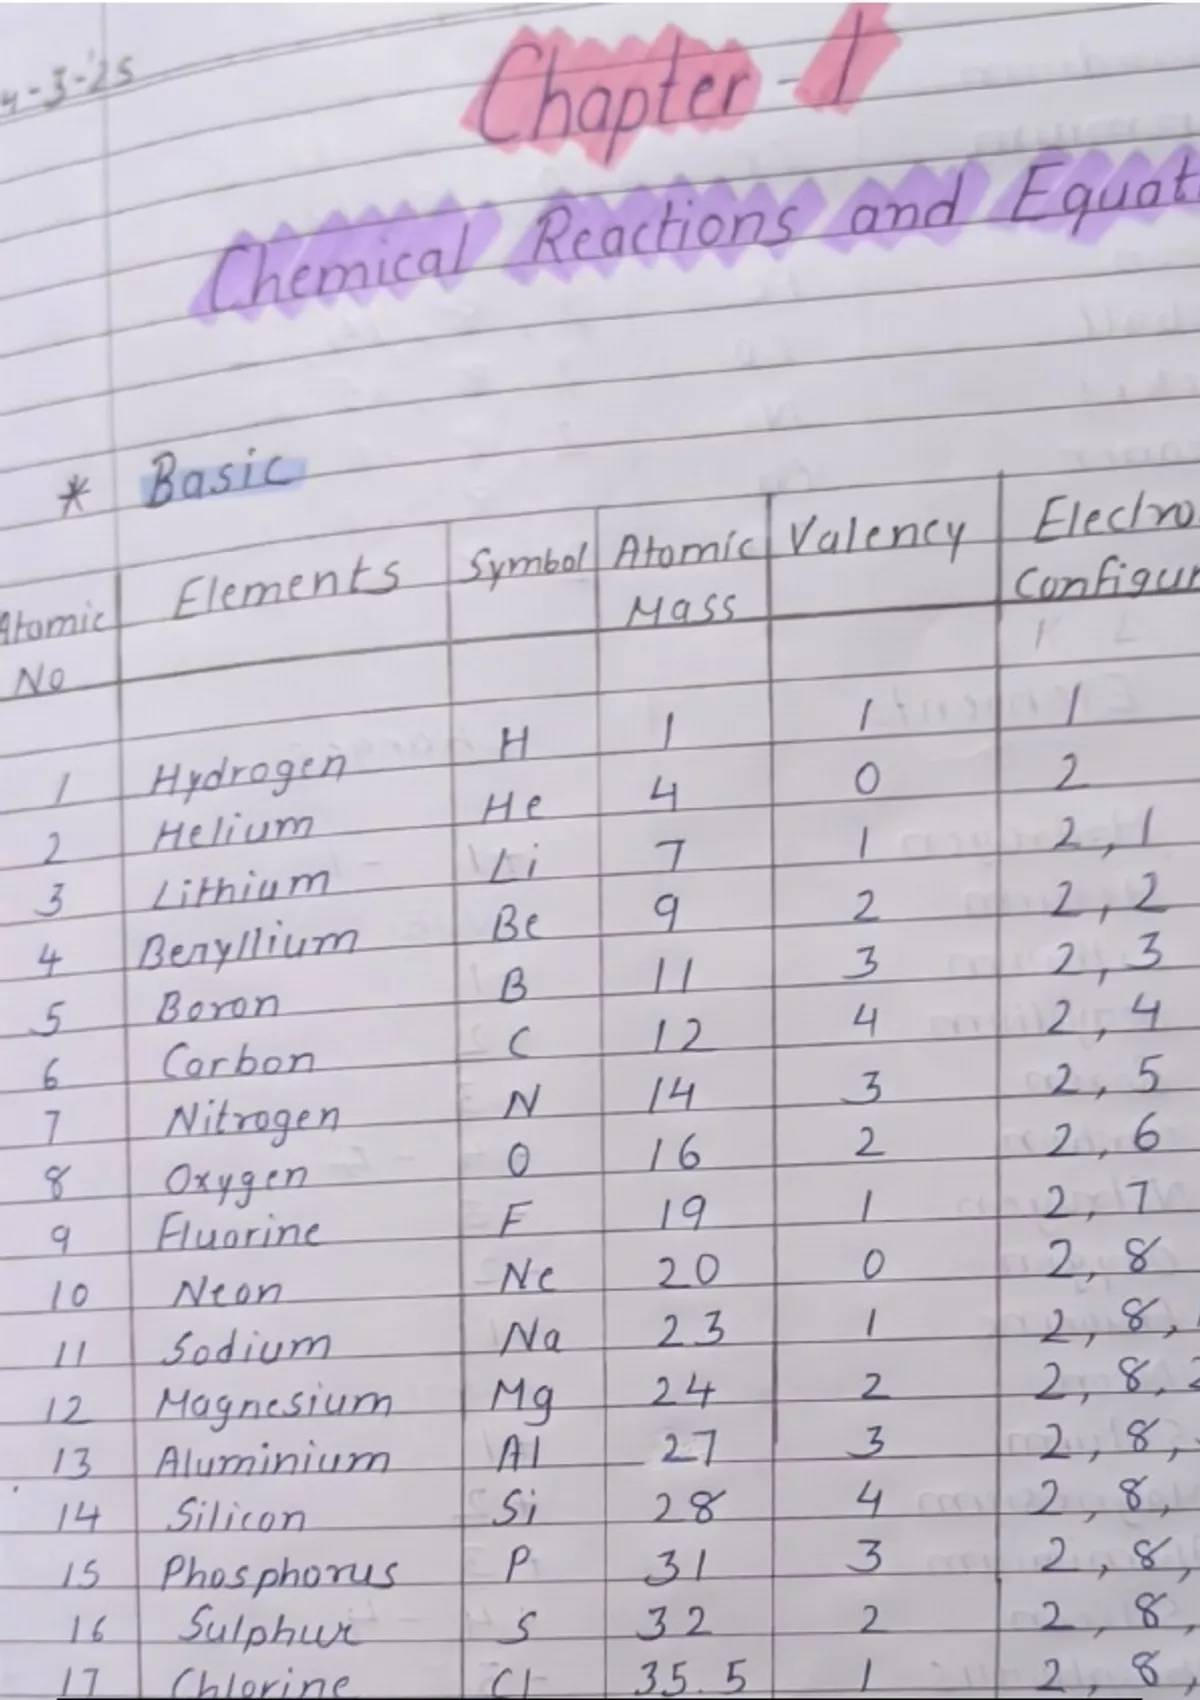 4-3-25
Chapter - 1
Chemical Reactions and Equat
* Basic
Atomic No Elements Symbol Atomic Mass Valency Electro Configur
1 Hydrogen H 1 1 1
2 Helium He 4 0 2
3 Lithium Li 7 1 2, 1
4 Beryllium Be 9 2 2, 2
5 Boron B 11 3 2, 3
6 Carbon C 12 4 2, 4
7 Nitrogen N 14 3 2, 5
8 Oxygen O 16 2 2, 6
9 Fluorine F 19 1 2, 7
10 Neon Ne 20 0 2, 8
11 Sodium Na 23 1 2, 8,
12 Magnesium Mg 24 2 2, 8, 2
13 Aluminium Al 27 3 2, 8,
14 Silicon Si 28 4 2, 8,
15 Phosphorus P 31 3 2, 8,
16 Sulphur S 32 2 2, 8,
17 Chlorine Cl 35.5 1 2, 8,